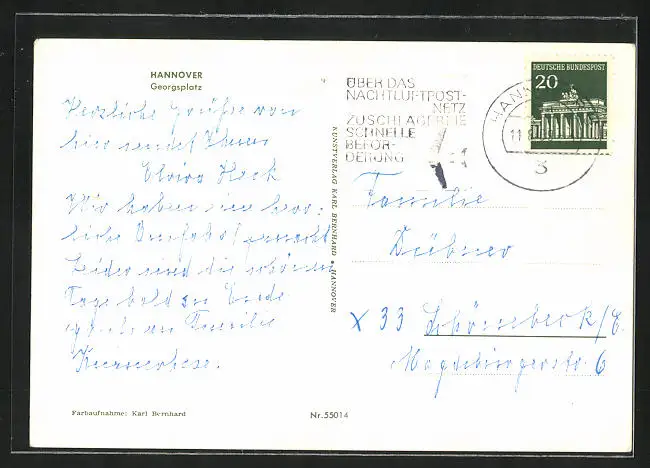 HANNOVER
Georgsplatz
Herzliche Grüße von
hier sendet Ihnen
Elvira Heck
Wir haben eine herr-
liche
Leider sind die schönen
Tage bald zu Ende
an Familie
ÜBER DAS
NACHTLUFTPOST-
NETZ
ZUSCHLAGFREIE
SCHNELLE
BEFÖR-
DERUNG
DEUTSCHE BUNDESPOST
20
HANN
11
S
KUNSTVERLAG KARL BERNHARD • HANNOVER
Familie
Dübner
X 33 Schönebeck/E.
Magdeburgerstr. 6
Farbaufnahme: Karl Bernhard
Nr. 55014